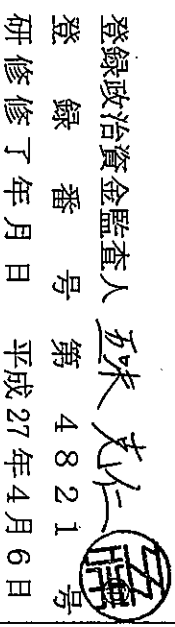 登録政治資金監査人 五味 克仁
登録番号 第4821号
研修修了年月日 平成27年4月6日